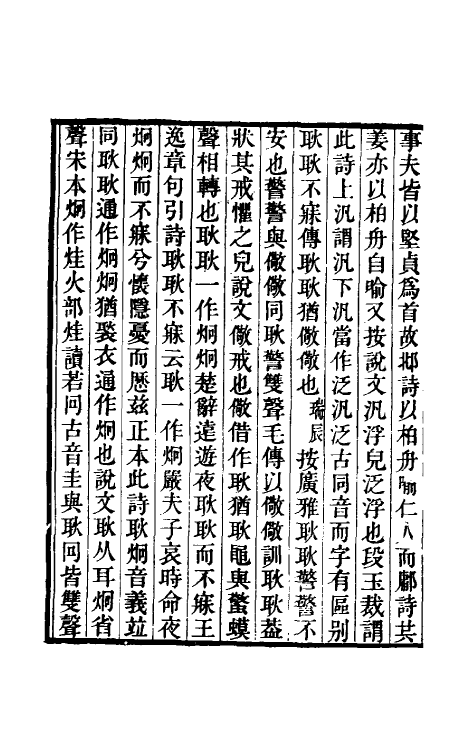 事夫皆以堅貞爲首故邶詩以柏舟明仁人而鄘詩共
姜亦以柏舟自喻又按說文汎浮皃泛浮也段玉裁謂
此詩上汎謂汎下汎當作泛汎泛古同音而字有區别
耿耿不寐傳耿耿猶儆儆也瑞辰按廣雅耿耿警警不
安也警警與儆儆同耿警雙聲毛傳以儆儆訓耿耿葢
狀其戒懼之皃說文儆戒也儆借作耿猶耿黽與螫蟆
聲相轉也耿耿一作炯炯楚辭遠遊夜耿耿而不寐王
逸章句引詩耿耿不寐云耿一作炯嚴夫子哀時命夜
炯炯而不寐兮懷隱憂而厯兹正本此詩耿炯音義竝
同耿耿通作炯炯猶褧衣通作炯也說文耿从耳炯省
聲宋本炯作烓火部烓讀若冋古音圭與耿冋皆雙聲